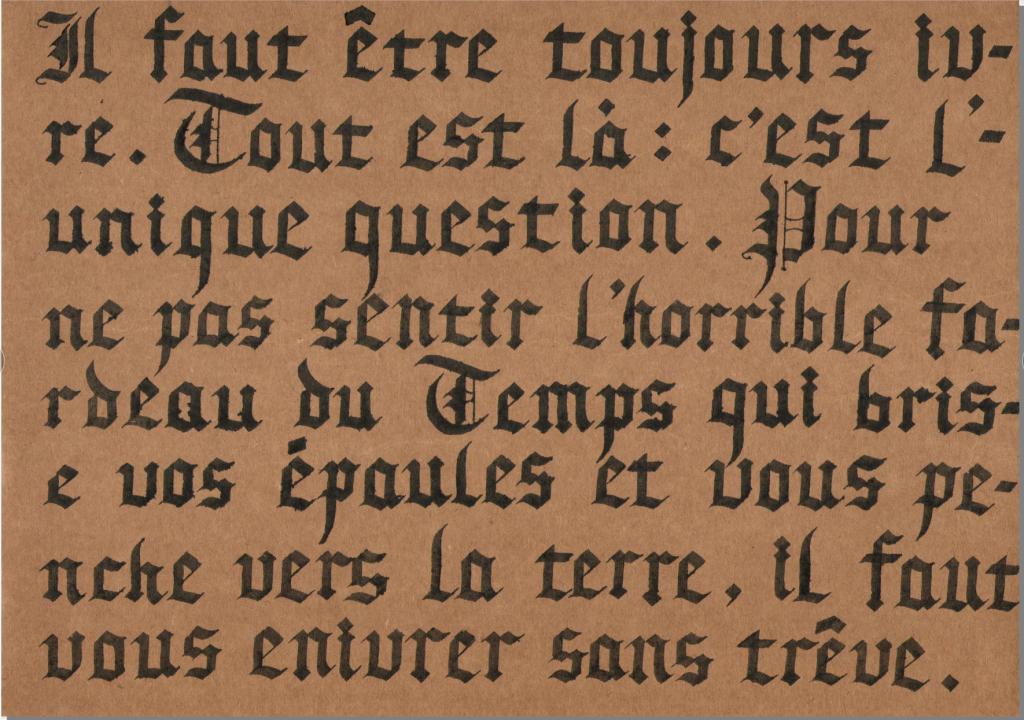 Il faut être toujours iv-
re. Tout est là : c'est l'-
unique question. Pour
ne pas sentir l'horrible fa-
rdeau du Temps qui bris-
e vos épaules et vous pe-
nche vers la terre, il faut
vous enivrer sans trêve.